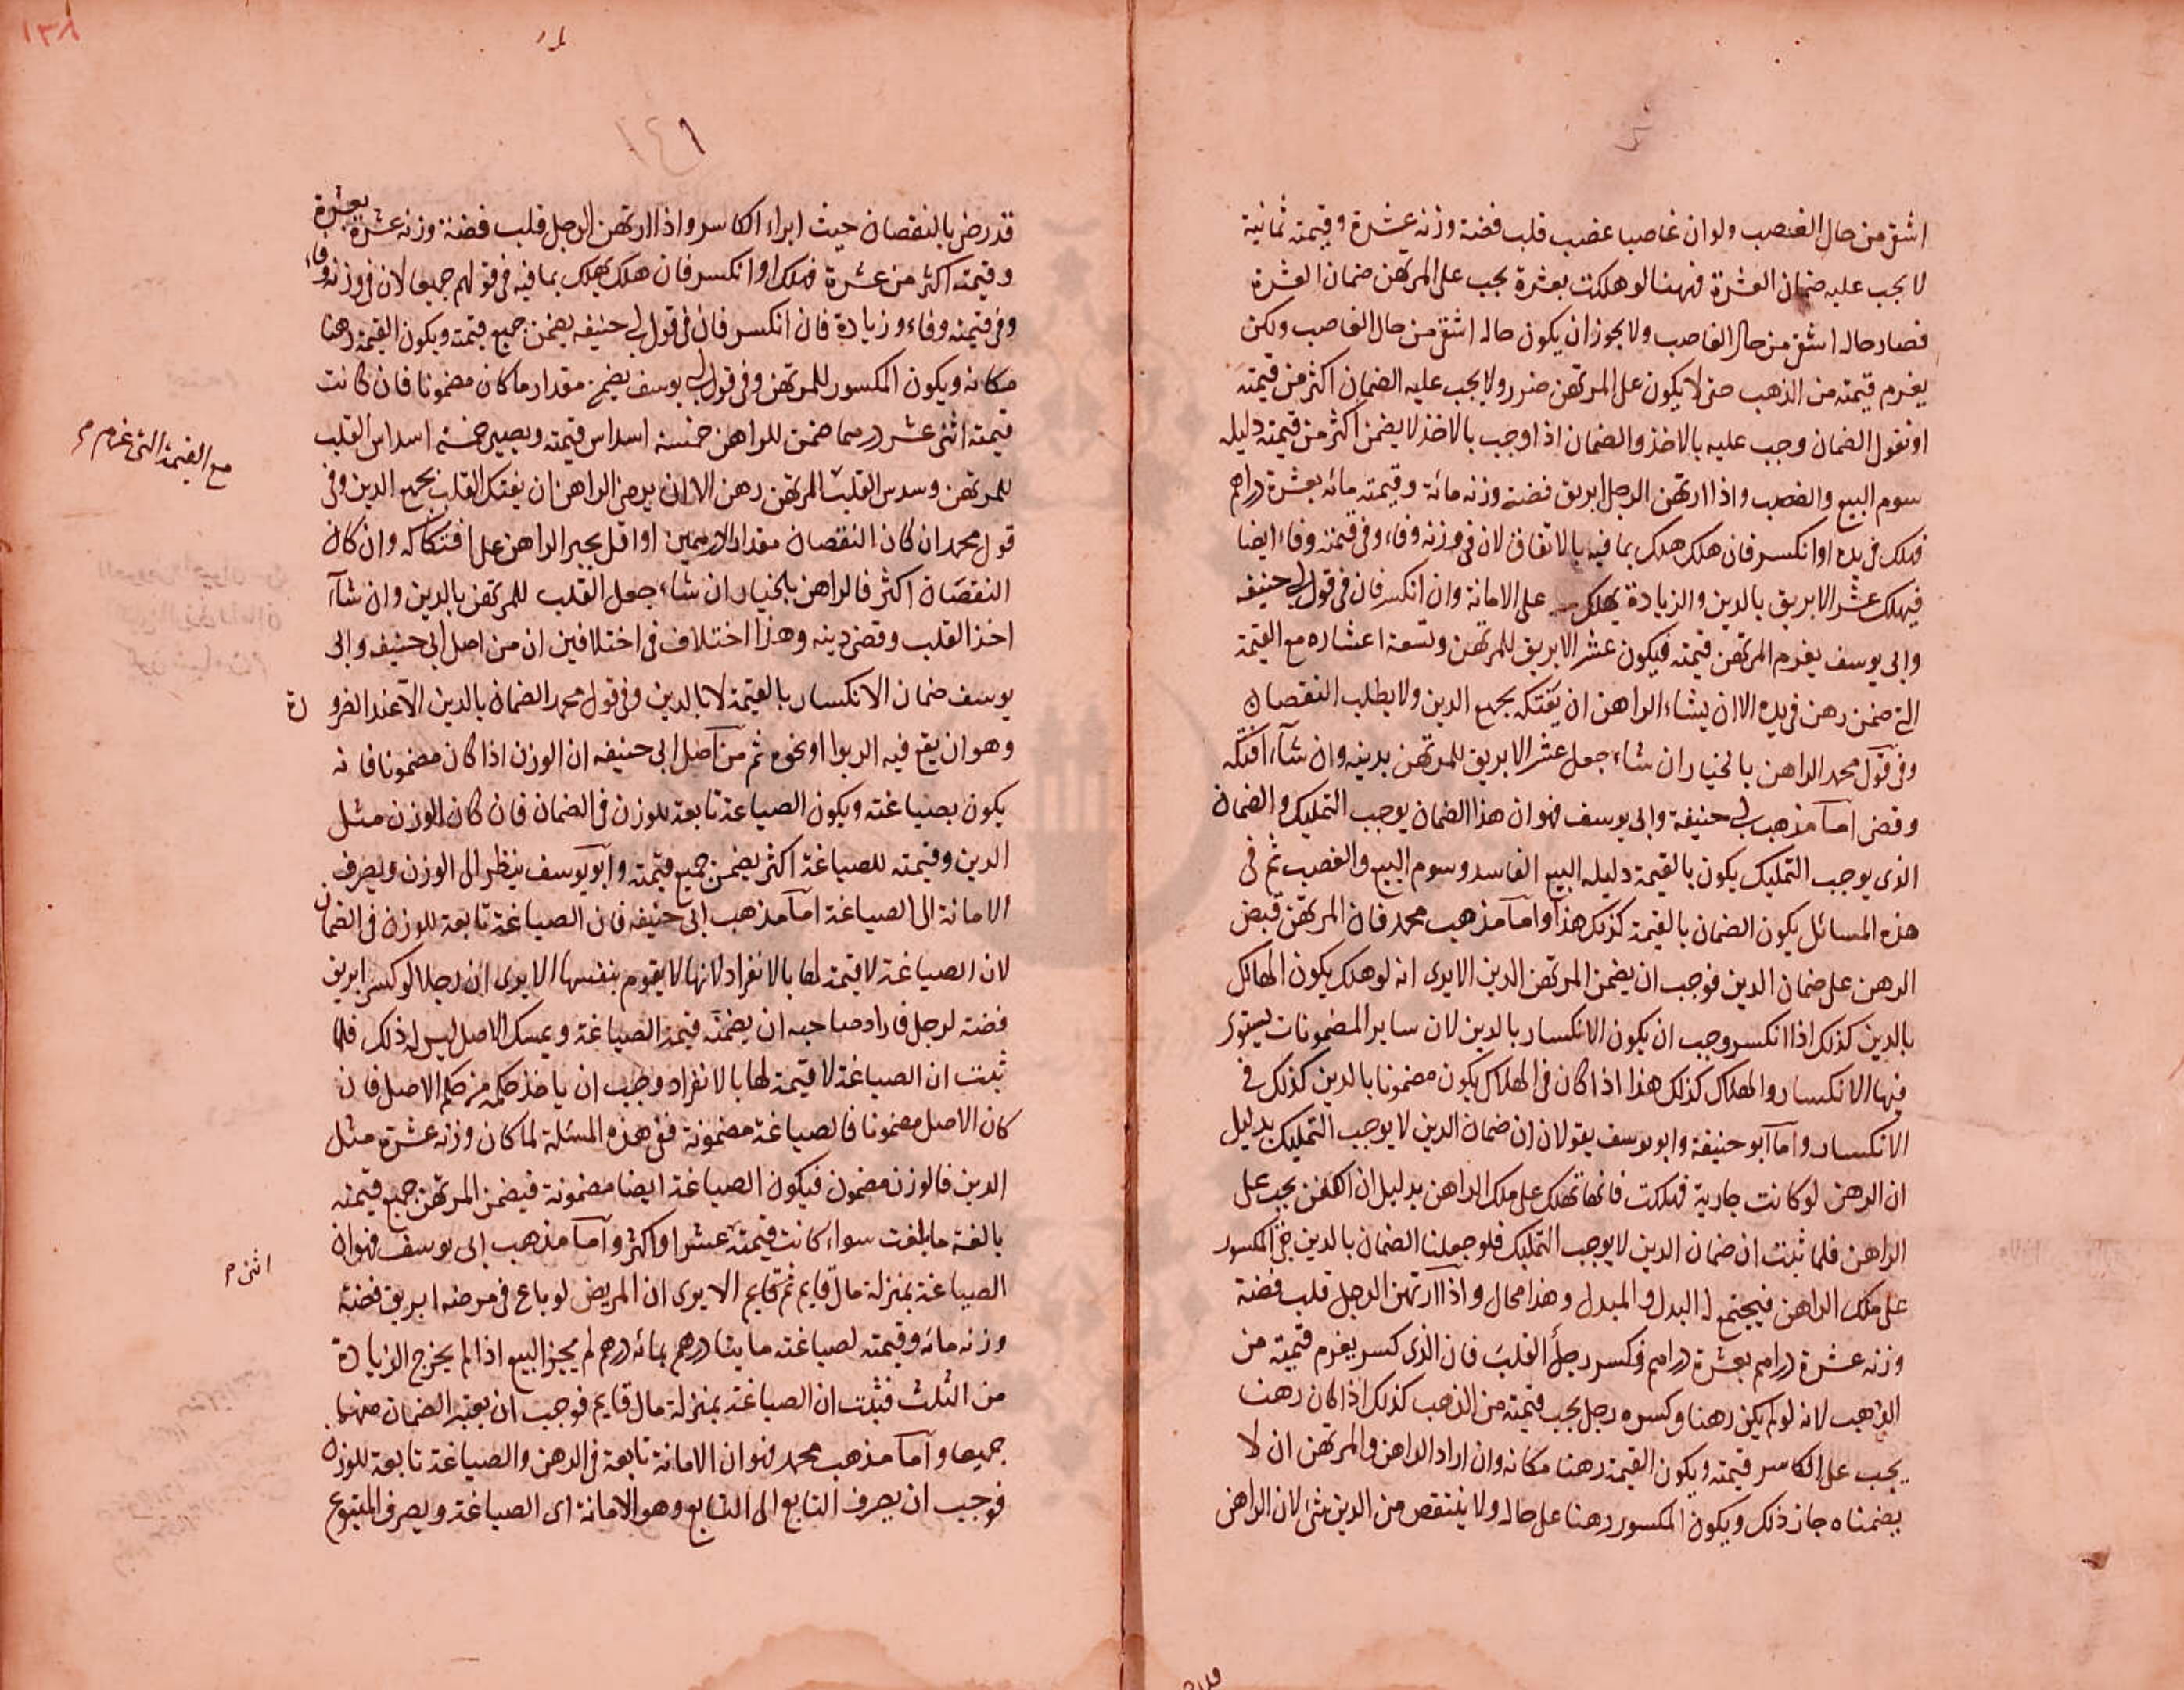 اشق من حال الغصب ولو ان غاصبا غصب قلب فضة وزنه عشرة وقيمته ثمانية
لا يجب عليه ضمان العشرة فههنا لو هلكت بعشرة يجب على المرتهن ضمان العشرة
فصار حاله اشق من حال الغاصب ولا يجوز ان يكون حاله اشق من حال الغاصب ولكن
يغرم قيمته من الذهب حتى لا يكون على المرتهن ضرر ولا يجب عليه الضمان اكثر من قيمته
او نقول الضمان وجب عليه بالاخذ والضمان اذا وجب بالاخذ لا يضمن اكثر من قيمته دليله
سوم البيع والغصب واذا ارتهن الرجل ابريق فضة وزنه مائة وقيمته مائه بعشرة دراهم
فهلك فى يده او انكسر فان هلك هلك بما فيه بالاتفاق لان فى وزنه وفاء وفى قيمته وفاء ايضا
فيهلك عشر الابريق بالدين والزيادة يهلك على الامانة وان انكسر فان فى قول ابى حنيفه
وابى يوسف يغرم المرتهن قيمته فيكون عشر الابريق للمرتهن وتسعة اعشاره مع القيمة
التى ضمن رهن فى يده الا ان يشاء الراهن ان يفتكه بجميع الدين ولا يطلب النقصان
وفى قول محمد الراهن بالخيار ان شاء جعل عشر الابريق للمرتهن بدينه وان شآء افتكه
وقضى اما مذهب ابى حنيفة وابى يوسف فهو ان هذا الضمان يوجب التمليك والضمان
الذى يوجب التمليك يكون بالقيمة دليله البيع الفاسد وسوم البيع والغصب ثم فى
هذه المسائل يكون الضمان بالقيمة كذلك هذا واما مذهب محمد فان المرتهن قبض
الرهن على ضمان الدين فوجب ان يضمن المرتهن الدين الا يرى انه لو هلك يكون الهالك
بالدين كذلك اذا انكسر وجب ان يكون الانكسار بالدين لان ساير المضمونات يستوى
فيها الانكسار والهلاك كذلك هذا اذا كان فى الهلاك يكون مضمونا بالدين كذلك فى
الانكسار واما ابو حنيفة وابو يوسف يقولان ان ضمان الدين لا يوجب التمليك بدليل
ان الرهن لو كانت جارية فهلكت فانها تهلك على ملك الراهن بدليل ان الكفن يجب على
الراهن فلما ثبت ان ضمان الدين لا يوجب التمليك فلو جعلنا الضمان بالدين بقى المكسور
على ملك الراهن فيجتمع له البدل والمبدل وهذا محال واذا ارتهن الرجل قلب فضة
وزنه عشرة دراهم بعشرة دراهم فكسر رجل القلب فان الذى كسر يغرم قيمته من
الذهب لانه لو لم يكن رهنا وكسره رجل يجب قيمته من الذهب كذلك اذا كان رهنا
يجب على الكاسر قيمته ويكون القيمة رهنا مكانه وان اراد الراهن والمرتهن ان لا
يضمناه جاز ذلك ويكون المكسور رهنا على حاله ولا ينتقص من الدين شئ لان الراهن
١٣٨
قد رضى بالنقصان حيث ابراء الكاسر واذا ارتهن الرجل قلب فضة وزنه عشرة بعشرة
وقيمته اكثر من عشرة فهلك او انكسر فان هلك يهلك بما فيه فى قولهم جميعا لان فى وزنه وفاء
وفى قيمته وفاء وزيادة فان انكسر فان فى قول ابى حنيفه يضمن جميع قيمته ويكون القيمة رهنا
مكانه ويكون المكسور للمرتهن وفى قول ابى يوسف يضمن مقدار ما كان مضمونا فان كانت
قيمته اثنى عشر درهما ضمن للراهن خمسة اسداس قيمته ويصير خمسة اسداس القلب
مع القيمة التى غرم م
للمرتهن وسدس القلب المرتهن رهن الا ان يرضى الراهن ان يفتك القلب بجميع الدين وفى
قول محمد ان كان النقصان مقدار الدرهمين او اقل يجبر الراهن على افتكاكه وان كان
النقصان اكثر فالراهن بالخيار ان شاء جعل القلب للمرتهن بالدين وان شآء
اخذ القلب وقضى دينه وهذا اختلاف فى اختلافين ان من اصل ابى حنيفه وابى
يوسف ضمان الانكسار بالقيمة لا بالدين وفى قول محمد الضمان بالدين الا عند الضرورة
وهو ان يقع فيه الربوا او نحوه ثم من اصل ابى حنيفه ان الوزن اذا كان مضمونا فانه
يكون بصياغته ويكون الصياغة تابعة للوزن فى الضمان فان كان الوزن مثل
الدين وقيمته للصياغة اكثر يضمن جميع قيمته وابو يوسف ينظر الى الوزن ويصرف
الامانة الى الصياغة اما مذهب ابى حنيفه فان الصياغة تابعة للوزن فى الضمان
لان الصياغة لا قيمة لها بالانفراد لانها لا يقوم بنفسها الا يرى ان رجلا لو كسر ابريق
فضة لرجل فاراد صاحبه ان يضمنه قيمة الصياغة ويمسك الاصل ليس له ذلك فلما
ثبت ان الصياغة لا قيمة لها بالانفراد وجب ان ياخذ حكمه من حكم الاصل فان
كان الاصل مضمونا فالصياغة مضمونة ففى هذه المسئلة لما كان وزنه عشرة مثل
الدين فالوزن مضمون فيكون الصياغة ايضا مضمونة فيضمن المرتهن جميع قيمته
بالغة ما بلغت سواء كانت قيمته عشرا او اكثر واما مذهب ابى يوسف فهو ان
اثنى م
الصياغة بمنزلة مال قايم ثم قايم الا يرى ان المريض لو باع فى مرضه ابريق فضة
وزنه مائه وقيمته لصياغته مايتا درهم بمائه درهم لم يجز البيع اذا لم يخرج الزيادة
من الثلث فثبت ان الصياغة بمنزلة مال قايم فوجب ان يعتبر الضمان منهما
جميعا واما مذهب محمد فهو ان الامانة تابعة فى الرهن والصياغة تابعة للوزن
فوجب ان يصرف التابع الى التابع وهو الامانة اى الصياغة ويصرف المتبوع